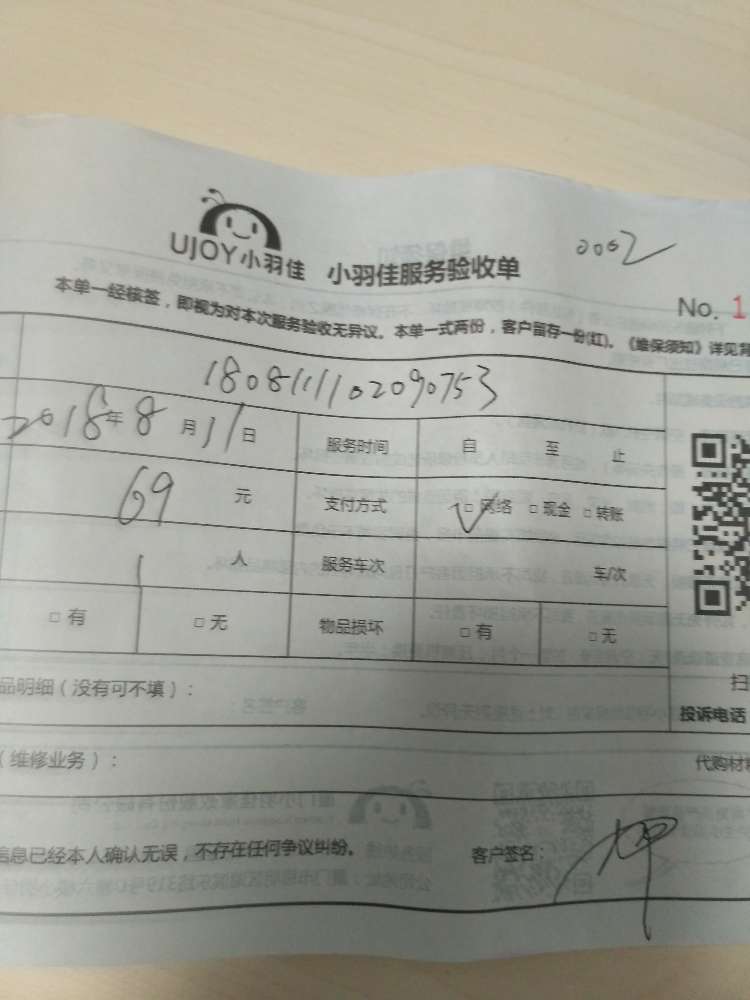 0062
UJOY小羽佳 小羽佳服务验收单
No. 1
本单一经核签，即视为对本次服务验收无异议。本单一式两份，客户留存一份(红)。《维保须知》详见背
180811102090753
2018年8月11日 服务时间 自 至 止
69 元 支付方式 √□网络 □现金 □转账
1 人 服务车次 车/次
□有 □无 物品损坏 □有 □无
扫
品明细（没有可不填）：
投诉电话
（维修业务）：
代购材料
信息已经本人确认无误，不存在任何争议纠纷。 客户签名：